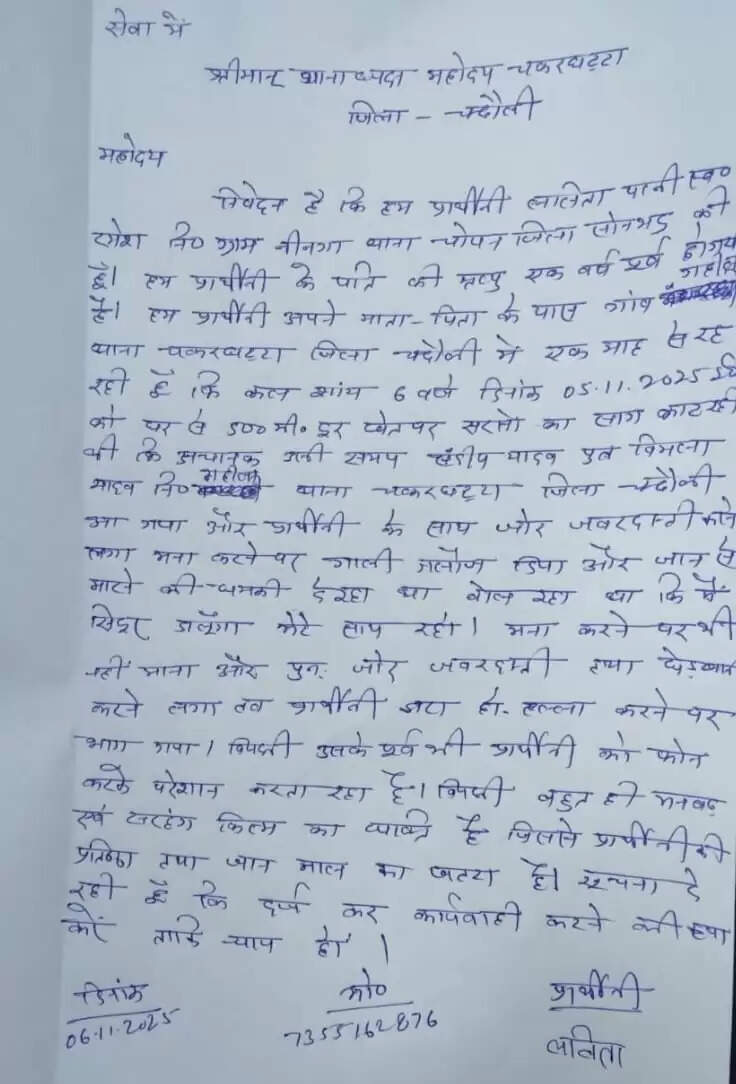 सेवा में
श्रीमान् थानाध्यक्ष महोदय चकरघट्टा
जिला - चन्दौली
महोदय
निवेदन है कि हम प्रार्थीनी ललिता पत्नी स्व०
नि० ग्राम थाना चोपन जिला सोनभद्र की
हूँ। हम प्रार्थीनी के पति की मृत्यु एक वर्ष पूर्व हो गया
है। हम प्रार्थीनी अपने माता-पिता के पास गांव
थाना चकरघट्टा जिला चन्दौली में एक माह से रह
रही हूँ कि कल शांय 6 बजे दिनांक 05.11.2025
को घर से 500 मी० दूर खेत पर सरसो का साग काट रही
थी कि अचानक उसी समय संदीप यादव पुत्र विमला
यादव नि० थाना चकरघट्टा जिला चन्दौली
आ गया और प्रार्थीनी के साथ जोर जबरदस्ती करने
लगा मना करने पर गाली गलौज दिया और जान से
मारने की धमकी दे रहा था बोल रहा था कि मैं
सिंदूर डालूँगा मेरे साथ रहो। मना करने पर भी
नहीं माना और पुनः जोर जबरदस्ती तथा छेड़खानी
करने लगा तब प्रार्थीनी द्वारा हो-हल्ला करने पर
भाग गया। विपक्षी उसके पूर्व भी प्रार्थीनी को फोन
करके परेशान करता रहा है। विपक्षी बहुत ही मनबढ़
एवं सरहंग किस्म का व्यक्ति है जिससे प्रार्थीनी की
प्रतिष्ठा तथा जान माल का खतरा है। सूचना दे
रही हूँ कि दर्ज कर कार्यवाही करने की कृपा
करें ताकि न्याय हो।
दिनांक मो० प्रार्थीनी
06.11.2025 7355162876 ललिता